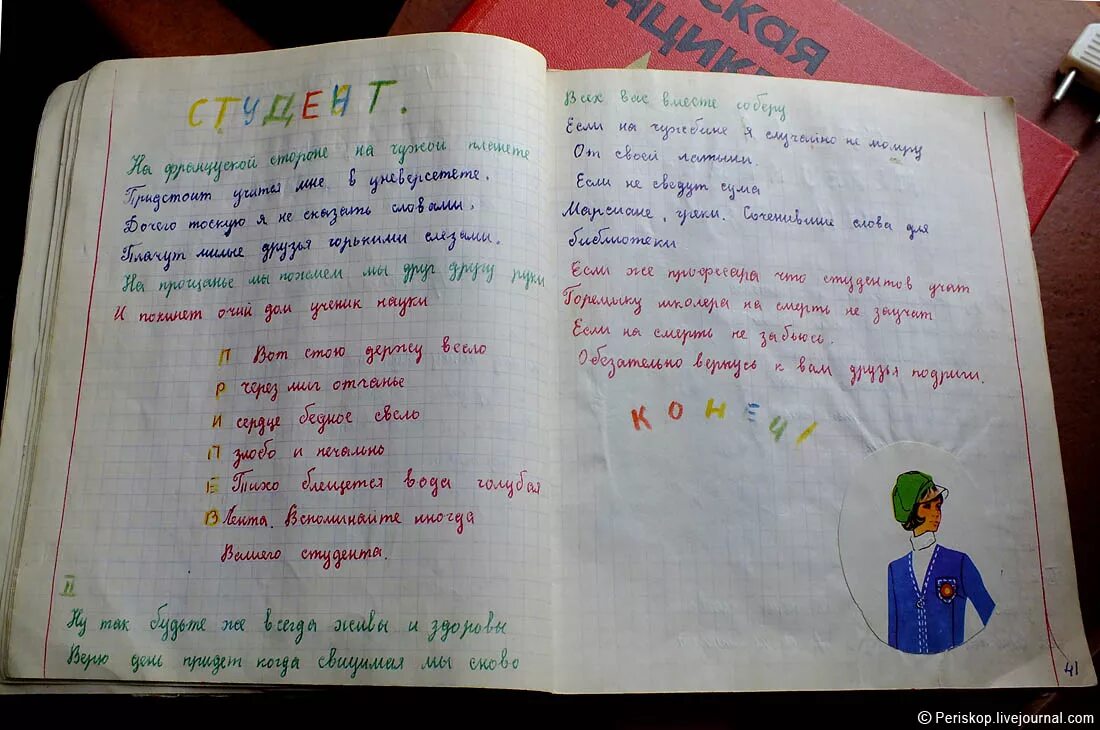 ская
нцик
СТУДЕНТ.
На француской стороне на чужой планете
Придстоит учится мне в уневерсетете.
Дочего тоскую я не сказать словами.
Плачут милые друзья горькими слезами.
На прощанье мы пожмем мы друг другу руки
И покинет очий дом ученик науки
ПРИПЕВ
Вот стою держу весло
через миг отчанье
сердце бедное свело
злобо и печально
Тихо блещется вода голубая
Лента. Вспоминайте иногда
Вашего студента.
II
Ну так будьте же всегда живы и здоровы
Верю день придет когда свицимая мы сново
Всех вас вместе соберу
Если на чужбине я случайно не помру
От своей латыни.
Если не сведут сума
Марсиане, греки. Соченившие слова для
библиотеки
Если же професара что студентов учат
Горемыку школера на смерть не заучат
Если на смерть не забьюсь.
Обезательно вернусь к вам друзья подриги.
КОНЕЦ!
41
© Periskop.livejournal.com